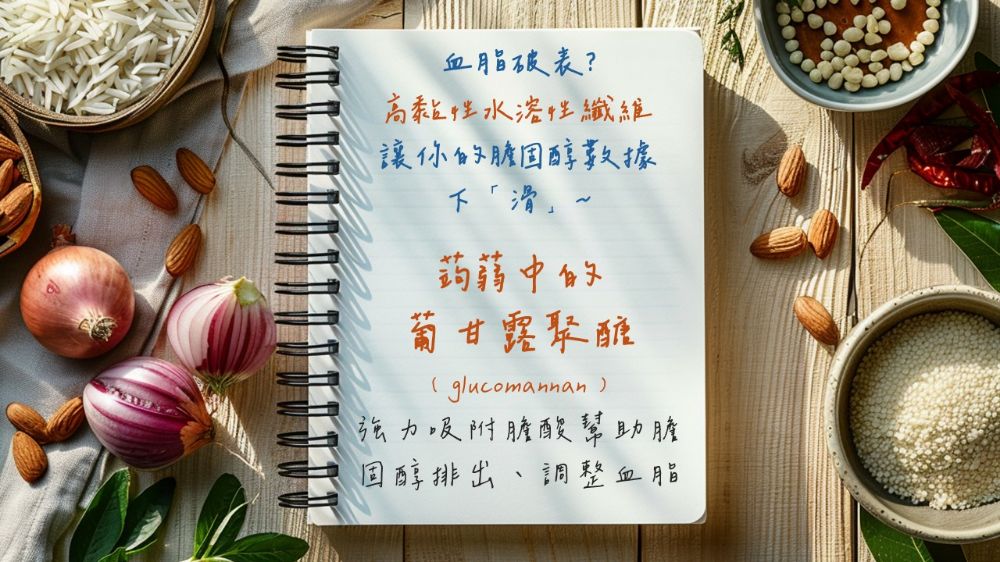 血脂破表?
高黏性水溶性纖維
讓你的膽固醇數據
下「滑」~
蒟蒻中的
葡甘露聚醣
(glucomannan)
強力吸附膽酸幫助膽
固醇排出、調整血脂